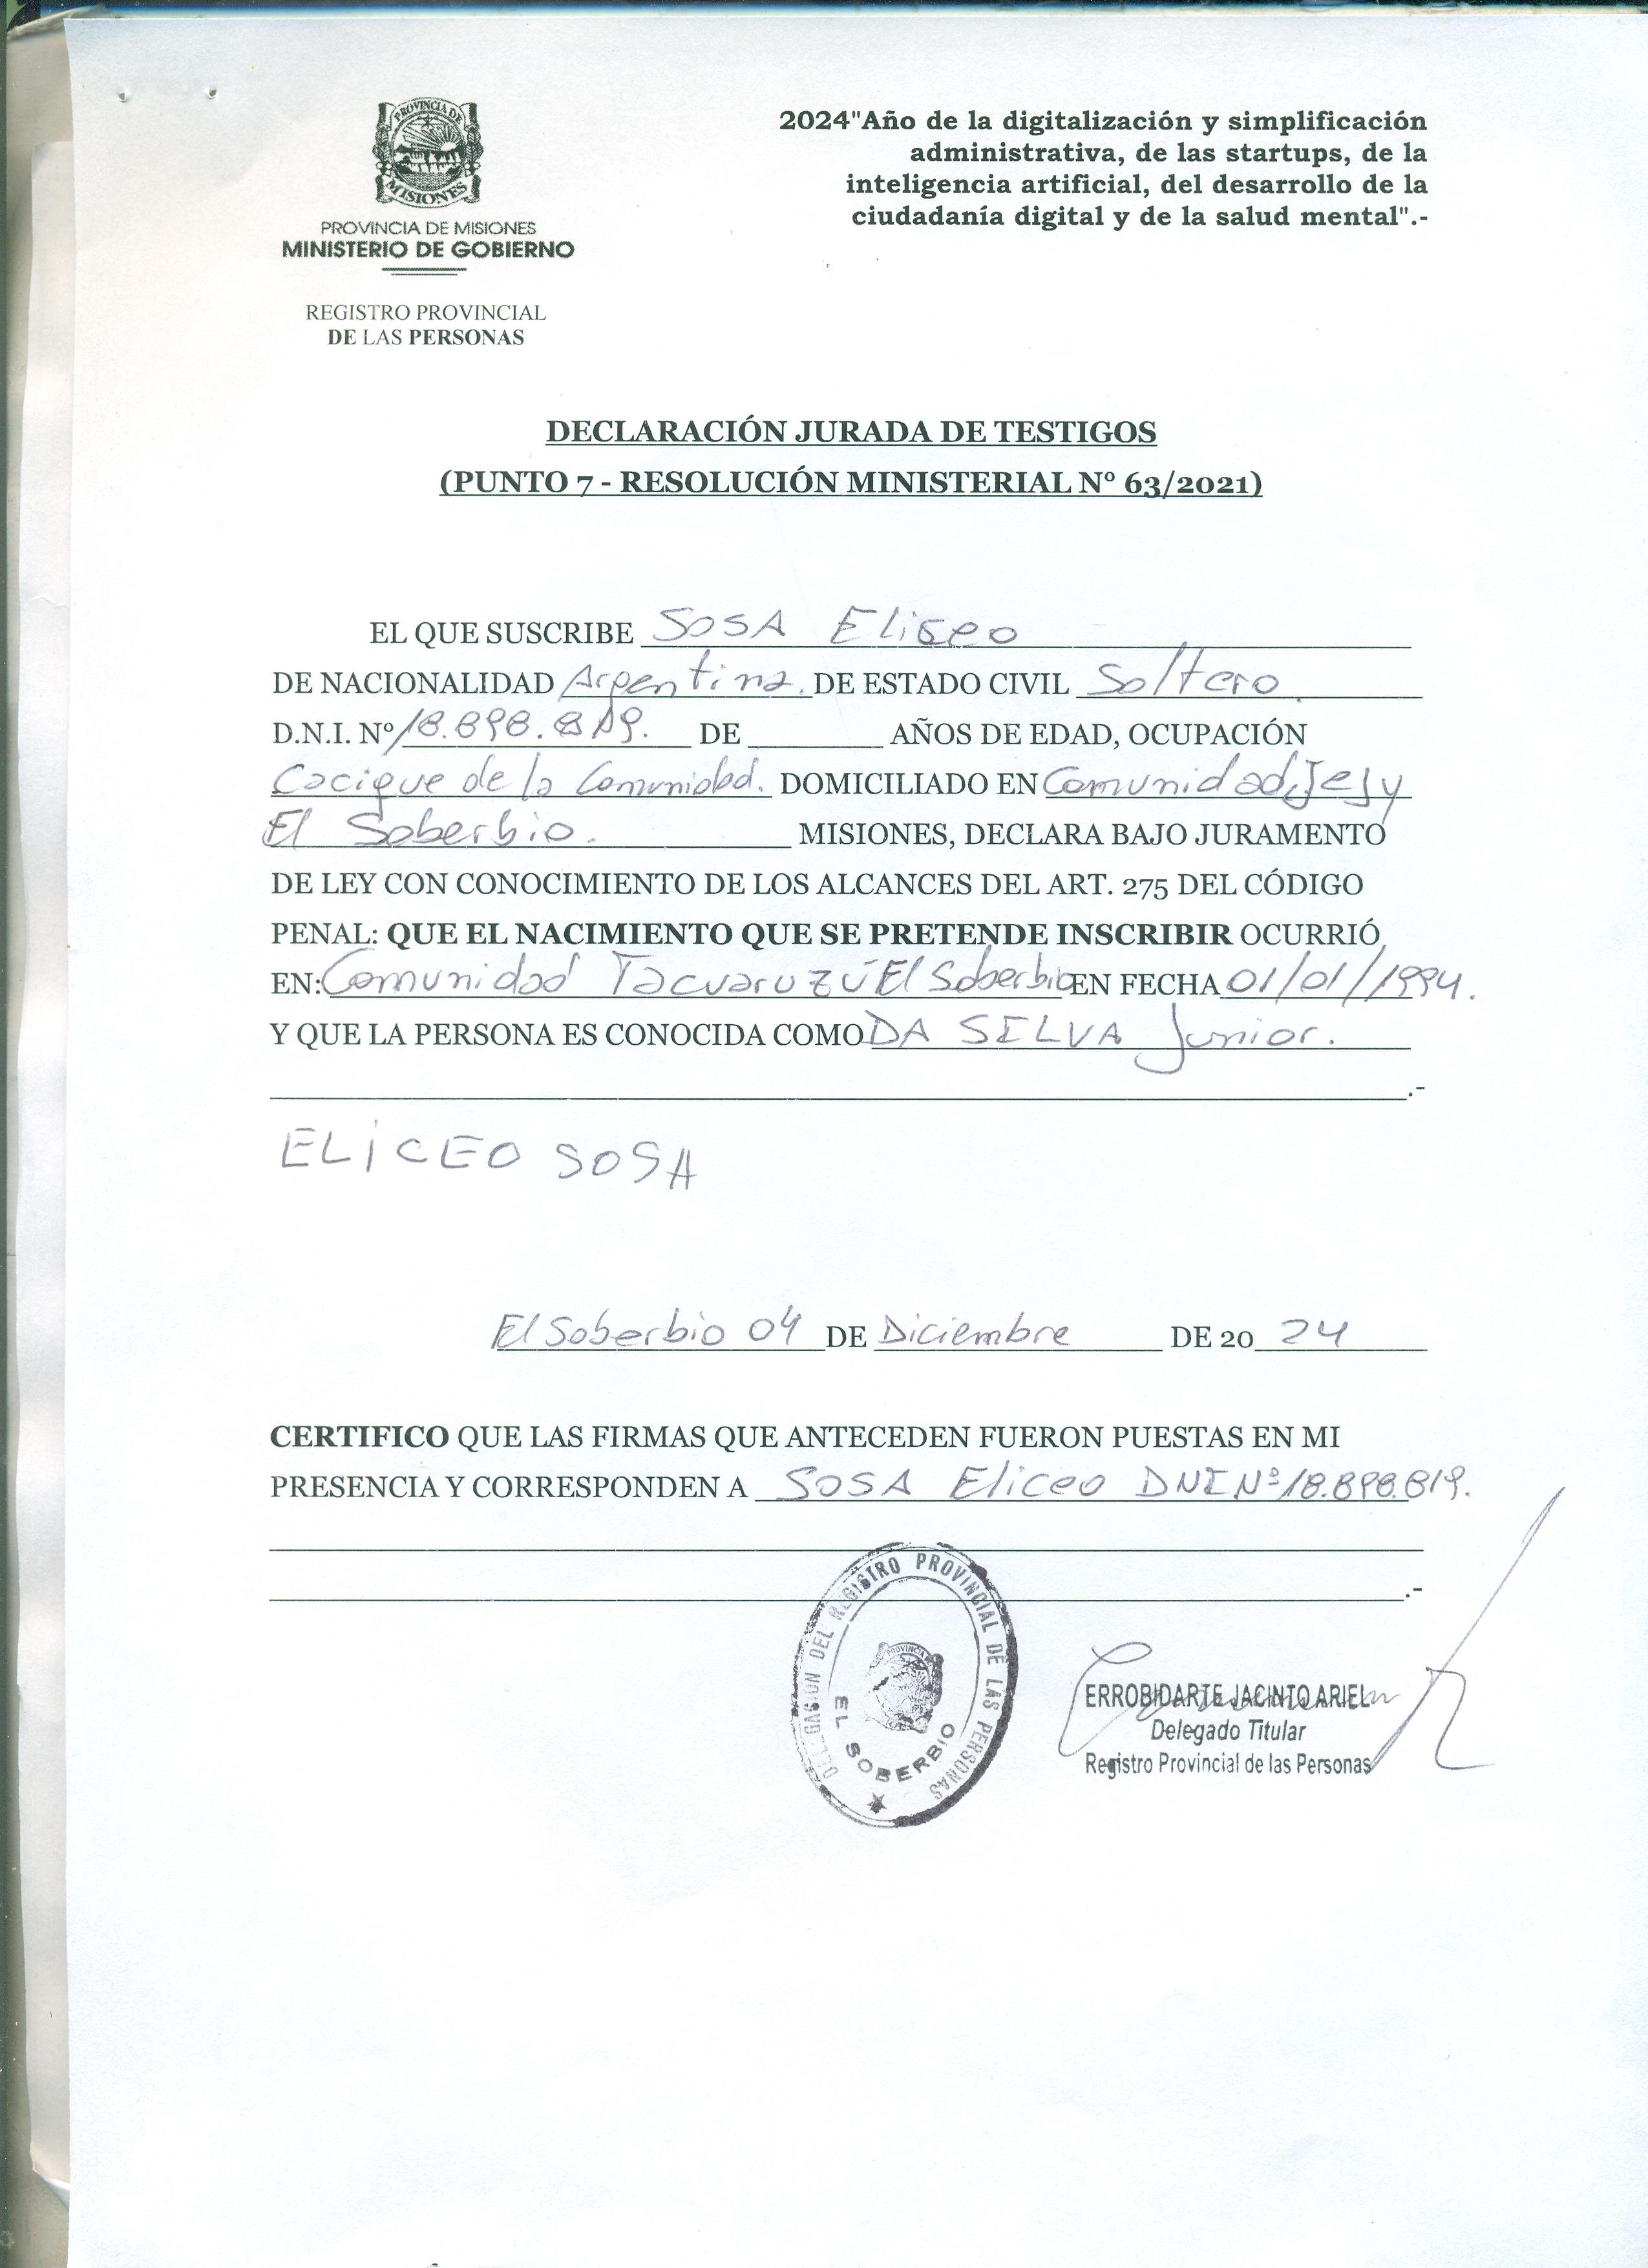 PROVINCIA DE
MISIONES
PROVINCIA DE MISIONES
MINISTERIO DE GOBIERNO
REGISTRO PROVINCIAL
DE LAS PERSONAS
2024"Año de la digitalización y simplificación
administrativa, de las startups, de la
inteligencia artificial, del desarrollo de la
ciudadanía digital y de la salud mental".-
DECLARACIÓN JURADA DE TESTIGOS
(PUNTO 7 - RESOLUCIÓN MINISTERIAL Nº 63/2021)
EL QUE SUSCRIBE SOSA Eliseo
DE NACIONALIDAD Argentina. DE ESTADO CIVIL Soltero.
D.N.I. Nº 18.898.819. DE ________ AÑOS DE EDAD, OCUPACIÓN
Cacique de la Comunidad. DOMICILIADO EN Comunidad, Jejy
El Soberbio. MISIONES, DECLARA BAJO JURAMENTO
DE LEY CON CONOCIMIENTO DE LOS ALCANCES DEL ART. 275 DEL CÓDIGO
PENAL: QUE EL NACIMIENTO QUE SE PRETENDE INSCRIBIR OCURRIÓ
EN: Comunidad Tacuaruzú El Soberbio EN FECHA 01/01/1994.
Y QUE LA PERSONA ES CONOCIDA COMO DA SELVA Junior.
.-
ELICEO SOSA
El Soberbio 04 DE Diciembre DE 20 24
CERTIFICO QUE LAS FIRMAS QUE ANTECEDEN FUERON PUESTAS EN MI
PRESENCIA Y CORRESPONDEN A SOSA Eliceo DNI Nº 18.898.819.
.-
DELEGACION DEL REGISTRO PROVINCIAL DE LAS PERSONAS
PROVINCIA
EL SOBERBIO
ERROBIDARTE JACINTO ARIEL
Delegado Titular
Registro Provincial de las Personas